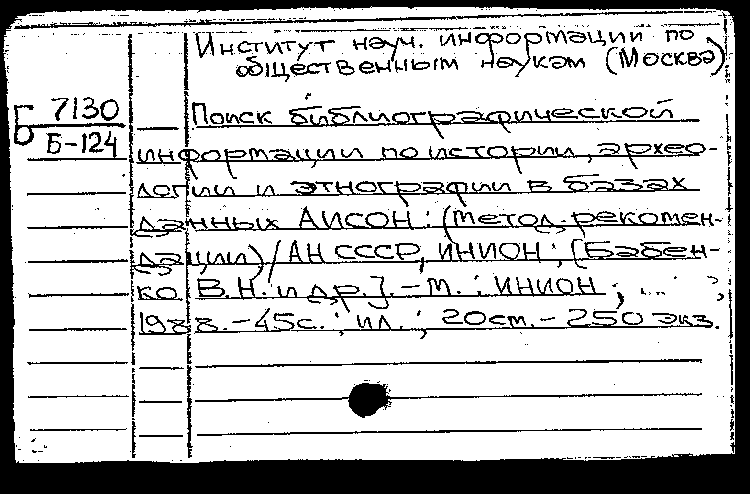 Институт науч. информации по
общественным наукам (Москва)
Б 7130
Б-124
Поиск библиографической
информации по истории, архео-
логии и этнографии в базах
данных АИСОН: (метод. рекомен-
дации) / АН СССР, ИНИОН; [Бабен-
ко В.Н. и др.]. - М. : ИНИОН,
1988. - 45с. : ил. ; 20см. - 250 экз.